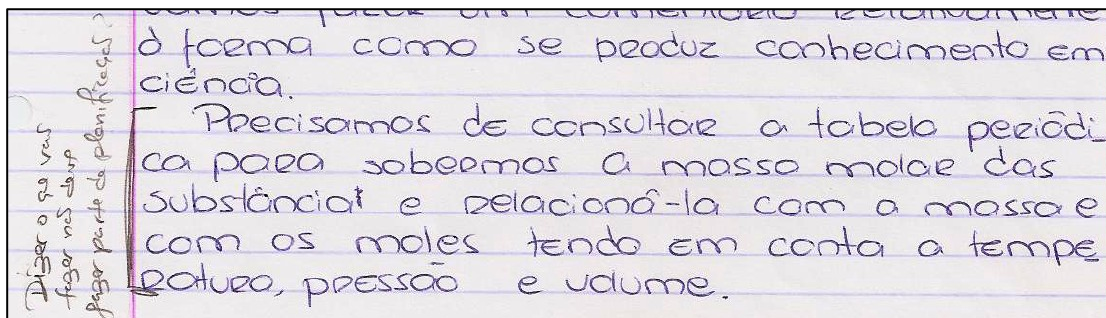 à forma como se produz conhecimento em
ciência.
Precisamos de consultar a tabela periódi_
ca para sabermos a massa molar das
substância e relacioná-la com a massa e
com os moles tendo em conta a tempe
ratura, pressão e volume.
Dizer o que vais
fazer não deve
fazer parte da planificação?